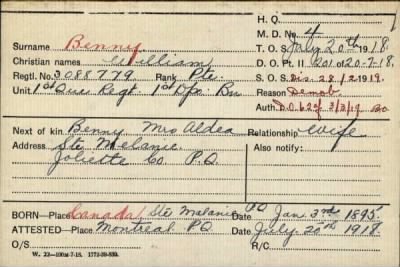 H. Q.
M. D. No. 4
Surname Benny
T. O. S. July 20th 1918.
Christian names William
D. O. Pt. II 201 0 20-7-18.
Regtl. No. 3088779 Rank Pte.
S. O. S. Dis. 28/2/1919.
Unit 1st Que. Regt. 1st Dpo. Bn
Reason Demob
Auth. D.O. 62 of 3/3/19
Next of kin Benny Mrs Aldea Relationship Wife
Address Ste Melanie Also notify:
Joliette Co. P.Q.
BORN—Place Canada Ste Melanie P.Q. Date Jan. 3rd 1895.
ATTESTED—Place Montreal P.Q. Date July 20th 1918.
O/S R/C
W. 22—100M-7-18. 1772-39-839.